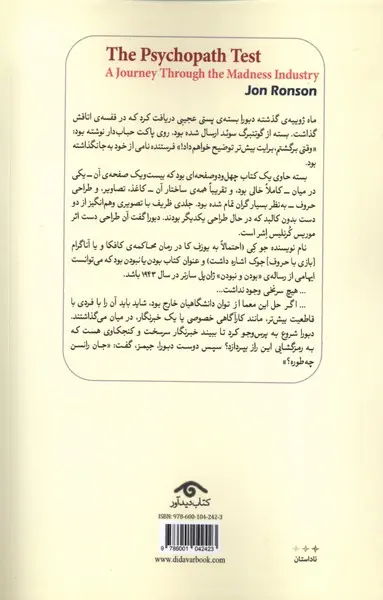 The Psychopath Test
A Journey Through the Madness Industry
Jon Ronson
ماه ژوییه‌ی گذشته دبورا بسته‌ی پستی عجیبی دریافت کرد که در قفسه‌ی اتاقش
گذاشت. بسته از گوتنبرگ سوئد ارسال شده بود. روی پاکت حباب‌دار نوشته بود:
«وقتی برگشتم، برایت بیش‌تر توضیح خواهم داد!» فرستنده نامی از خود به جا نگذاشته
بود.
بسته حاوی یک کتاب چهل‌ودوصفحه‌ای بود که بیست‌ویک صفحه‌ی آن ــ یکی
در میان ــ کاملاً خالی بود، و تقریباً همه‌ی ساختار آن ــ کاغذ، تصاویر، و طراحی
حروف ــ به‌نظر بسیار گران تمام شده بود. جلدی ظریف با تصویری وهم‌انگیز از دو
دست بدون کالبد که در حال طراحی یکدیگر بودند. دبورا گفت آن طراحی دست اثر
موریس کُرنلیس اِشر است.
نام نویسنده جو کِی (احتمالاً به یوزف کا در رمان محاکمه‌ی کافکا و یا آناگرام
[بازی با حروف] جوک اشاره داشت) و عنوان کتاب بودن یا نبودن بود که می‌توانست
ایهامی از رساله‌ی «بودن و نبودن» ژان‌پل سارتر در سال ۱۹۴۳ باشد.
... هیچ سرنخی وجود نداشت...
... اگر حل این معما از توان دانشگاهیان خارج بود، شاید باید آن را با فردی با
قاطعیت بیش‌تر، مانند کارآگاهی خصوصی یا یک خبرنگار، در میان می‌گذاشتند.
دبورا شروع به پرس‌وجو کرد تا ببیند خبرنگار سرسخت و کنجکاوی هست که
به رمزگشایی این راز بپردازد؟ سپس دوست دبورا، جیمز، گفت: «جان رانسن
چه‌طوره؟»
کتاب دیدآور
ISBN: 978-600-104-242-3
9 786001 042423
www.didavarbook.com
ناداستان